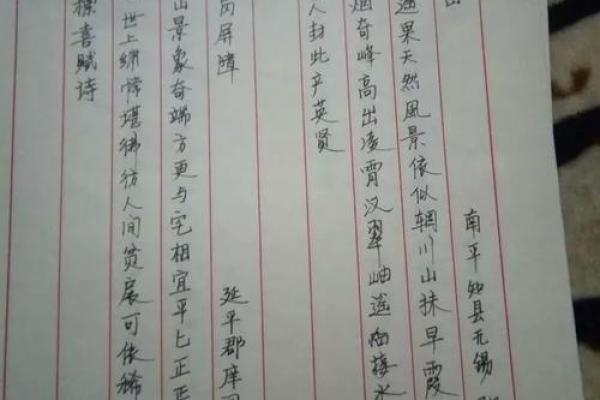 南平知县无锡
果天然風景依似辋川山抹早霞
烟奇峰高出凌霄汉翠岫遥接水
人封此产英贤
延平郡庠
屏障
山景象奇端方更与宅相宜平匕正正
世上帏堪彿人间展可依稀
標喜赋诗